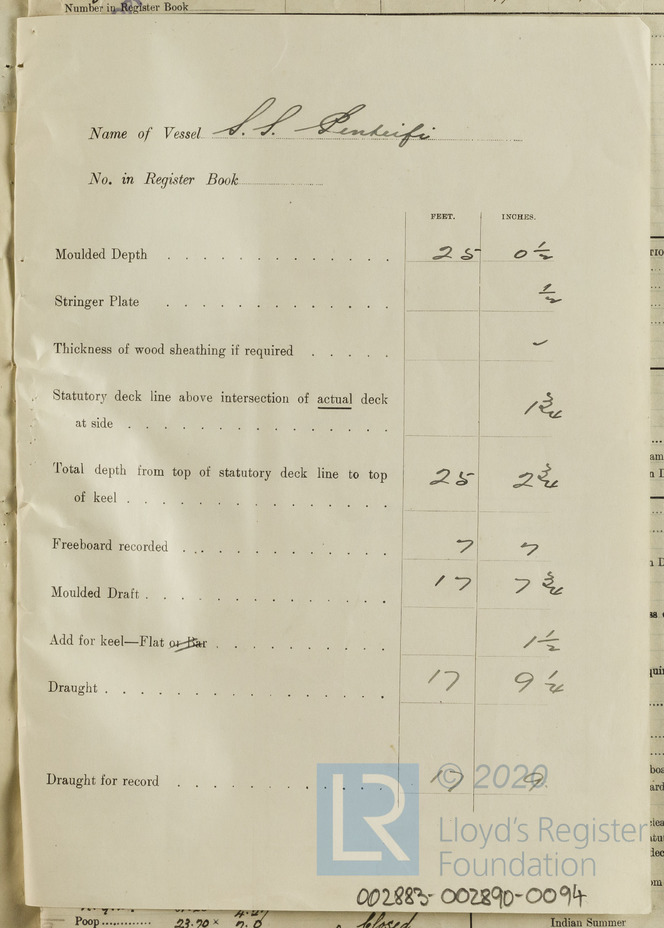 Number in Register Book
Name of Vessel S.S. Penteifi
No. in Register Book
FEET. INCHES.
Moulded Depth 25 0 1/2
Stringer Plate 1/2
Thickness of wood sheathing if required -
Statutory deck line above intersection of actual deck
at side 1 3/4
Total depth from top of statutory deck line to top
of keel 25 2 3/4
Freeboard recorded 7 7
Moulded Draft 17 7 3/4
Add for keel—Flat or Bar 1 1/2
Draught 17 9 1/4
Draught for record 17 9
© 2020
LR
Lloyd's Register
Foundation
002883-002890-0094
Poop 23.70 × 7.0 closed Indian Summer